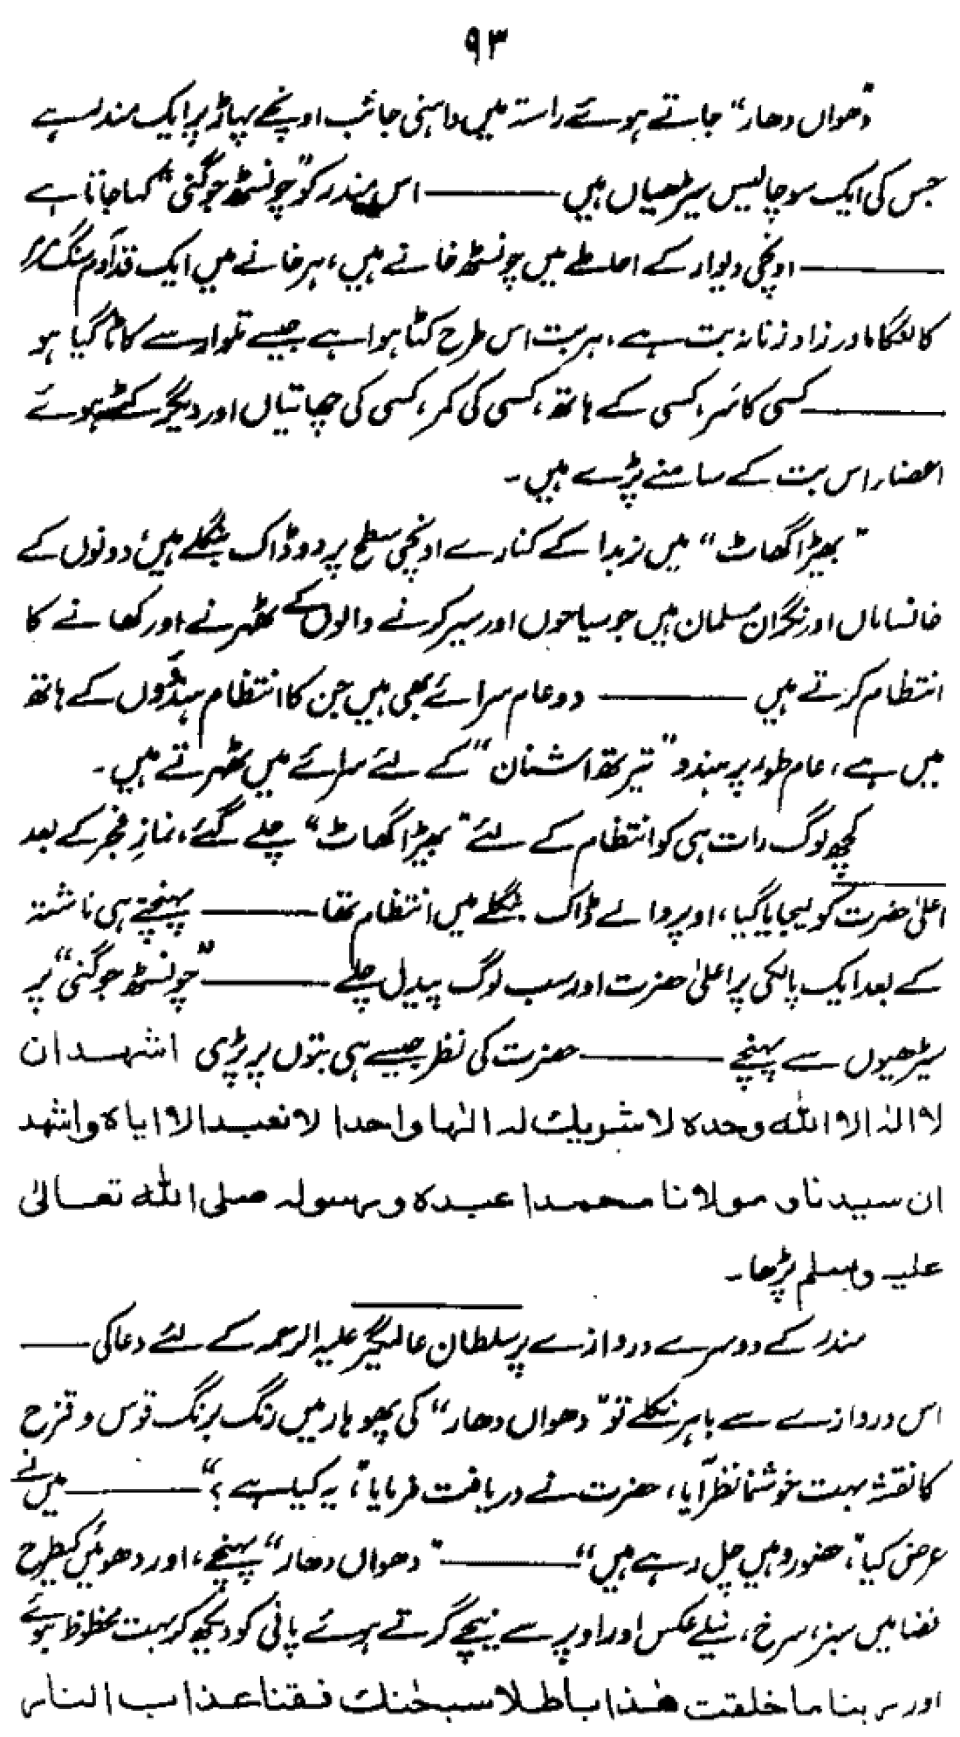 ۹۳
"دھواں دھار" جاتے ہوئے راستہ میں داہنی جانب اونچے پہاڑ پر ایک مندر ہے
جس کی ایک سو چالیس سیڑھیاں ہیں ——— اس مندر کو "چونسٹھ جوگنی" کہا جاتا ہے
——— اونچی دیوار کے احاطے میں چونسٹھ خانے ہیں، ہر خانے میں ایک قد آدم سنگ مرمر
کا ننگا مادر زاد زنانہ بت ہے، ہر بت اس طرح کٹا ہوا ہے جیسے تلوار سے کاٹا گیا ہو
——— کسی کا سر، کسی کے ہاتھ، کسی کی کمر، کسی کی چھاتیاں اور دیگر کٹے ہوئے
اعضاء اس بت کے سامنے پڑے ہیں۔
"بھیڑا گھاٹ" میں نربدا کے کنارے اونچی سطح پر دو ڈاک بنگلے ہیں، دونوں کے
خانساماں اور نگران مسلمان ہیں جو سیاحوں اور سیر کرنے والوں کے ٹھہرنے اور کھانے کا
انتظام کرتے ہیں ——— دو عام سرائے بھی ہیں جن کا انتظام ہندؤوں کے ہاتھ
میں ہے، عام طور پر ہندو "تیرتھ اشنان" کے لئے سرائے میں ٹھہرتے ہیں۔
کچھ لوگ رات ہی کو انتظام کے لئے "بھیڑا گھاٹ" چلے گئے، نمازِ فجر کے بعد
اعلیٰ حضرت کو لیجایا گیا، اوپر والے ڈاک بنگلے میں انتظام تھا ——— پہنچتے ہی ناشتہ
کے بعد ایک پالکی پر اعلیٰ حضرت اور سب لوگ پیدل چلے ——— "چونسٹھ جوگنی" پر
سیڑھیوں سے پہنچے ——— حضرت کی نظر جیسے ہی بتوں پر پڑی اشھد ان
لا الٰہ الا اللہ وحدہ لا شریك لہ الٰھا واحدا لا نعبد الا ایاہ واشھد
ان سیدنا و مولانا محمدا عبدہ ورسولہ صلی اللہ تعالیٰ
علیہ وسلم پڑھا۔
مندر کے دوسرے دروازے پر سلطان عالمگیر علیہ الرحمہ کے لئے دعا کی ———
اس دروازے سے باہر نکلے تو "دھواں دھار" کی پھوہار میں رنگ برنگ قوس و قزح
کا نقشہ بہت خوشنما نظر آیا، حضرت نے دریافت فرمایا، "یہ کیا ہے؟" ——— میں نے
عرض کیا، "حضور وہیں چل رہے ہیں" ——— "دھواں دھار" پہنچے، اور دھوئیں کیطرح
فضا میں سبز، سرخ، نیلے عکس اور اوپر سے نیچے گرتے ہوئے پانی کو دیکھ کر بہت محظوظ ہوئے
اور ربنا ما خلقت ھٰذا باطلا سبحٰنك فقنا عذاب النار